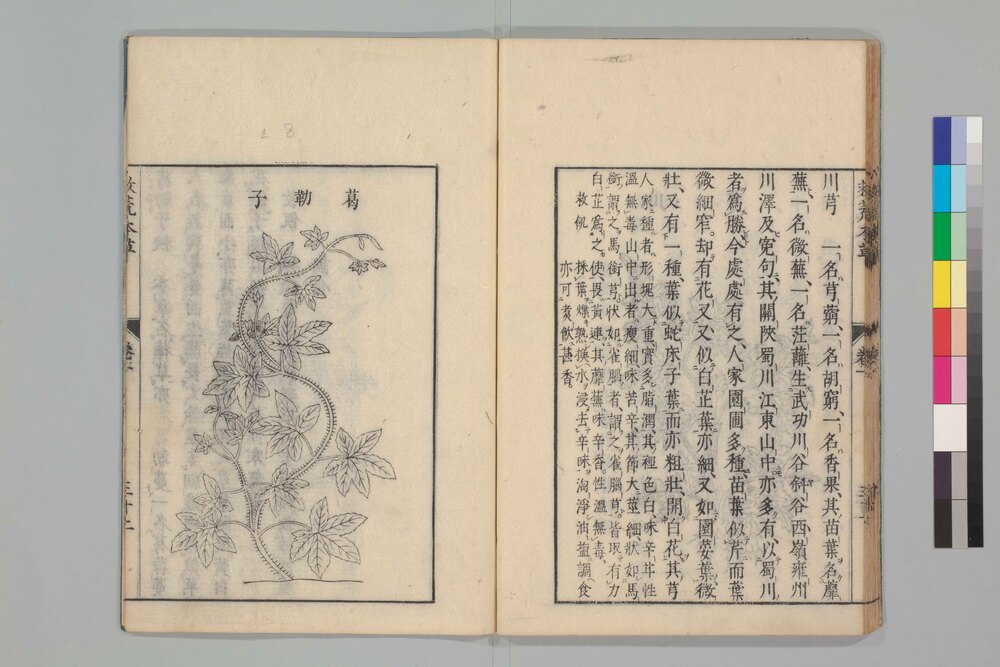 川芎　一名芎藭、一名胡窮、一名香果、其苗葉名蘼
蕪、一名微蕪、一名茳蘺、生武功川谷斜谷西嶺雍州
川澤及寃句、其關陝蜀川江東山中亦多有、以蜀川
者爲勝、今處處有之、人家園圃多種、苗葉似芹而葉
微細窄、却有花叉又似白芷葉亦細、又如園荽葉微
壯、又有一種、葉似蛇床子葉而亦粗壯、開白花、其芎
人家種者、形塊大、重實多脂潤、其裡色白、味辛苷性
溫無毒、山中出者、瘦細味苦辛、其節大莖細狀如馬
銜、謂之馬銜芎、狀如雀腦者、謂之雀腦芎、皆取有力
白芷爲之使、畏黃連、其蘼蕪味辛香、性溫無毒
救飢　採葉煠熟、換水浸去辛味、淘淨油鹽調食
亦可煮飲甚香
救荒本草
卷二
葛勒子
救荒本草
卷二
三十二